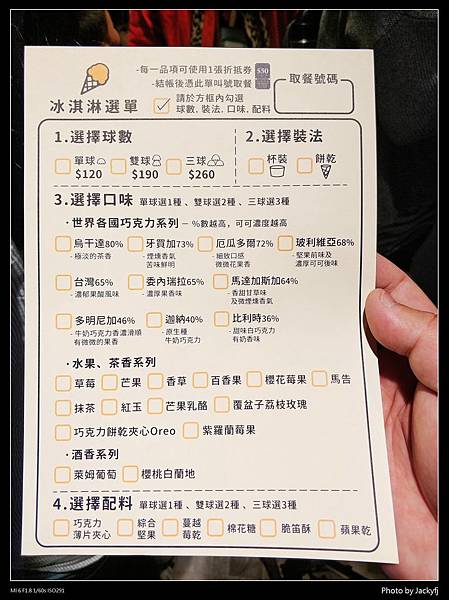 -每一品項可使用1張折抵券 $50
-結帳後憑此單叫號取餐
取餐號碼
冰淇淋選單
請於方框內勾選
球數, 裝法, 口味, 配料
1.選擇球數
單球 雙球 三球
$120 $190 $260
2.選擇裝法
杯裝 餅乾
3.選擇口味 單球選1種、雙球選2種、三球選3種
·世界各國巧克力系列 – %數越高，可可濃度越高
烏干達80% 牙買加73% 厄瓜多爾72% 玻利維亞68%
- 極淡的茶香 - 煙燻香氣 苦味鮮明 - 細致口感 微微花果香 - 堅果前味及 濃厚可可後味
台灣65% 委內瑞拉65% 馬達加斯加64%
- 濃郁果酸風味 - 濃厚果香味 - 香甜甘草味 及微煙燻香氣
多明尼加46% 迦納40% 比利時36%
- 牛奶巧克力香濃滑順 有微微的果香 - 原生種 牛奶巧克力 - 甜味白巧克力 有奶香味
·水果、茶香系列
草莓 芒果 香草 百香果 櫻花莓果 馬告
抹茶 紅玉 芒果乳酪 覆盆子荔枝玫瑰
巧克力餅乾夾心Oreo 紫羅蘭莓果
·酒香系列
萊姆葡萄 櫻桃白蘭地
4.選擇配料 單球選1種、雙球選2種、三球選3種
巧克力 薄片夾心 綜合 堅果 蔓越 莓乾 棉花糖 脆笛酥 蘋果乾
MI 6 F1.8 1/60s ISO291
Photo by Jackyfj